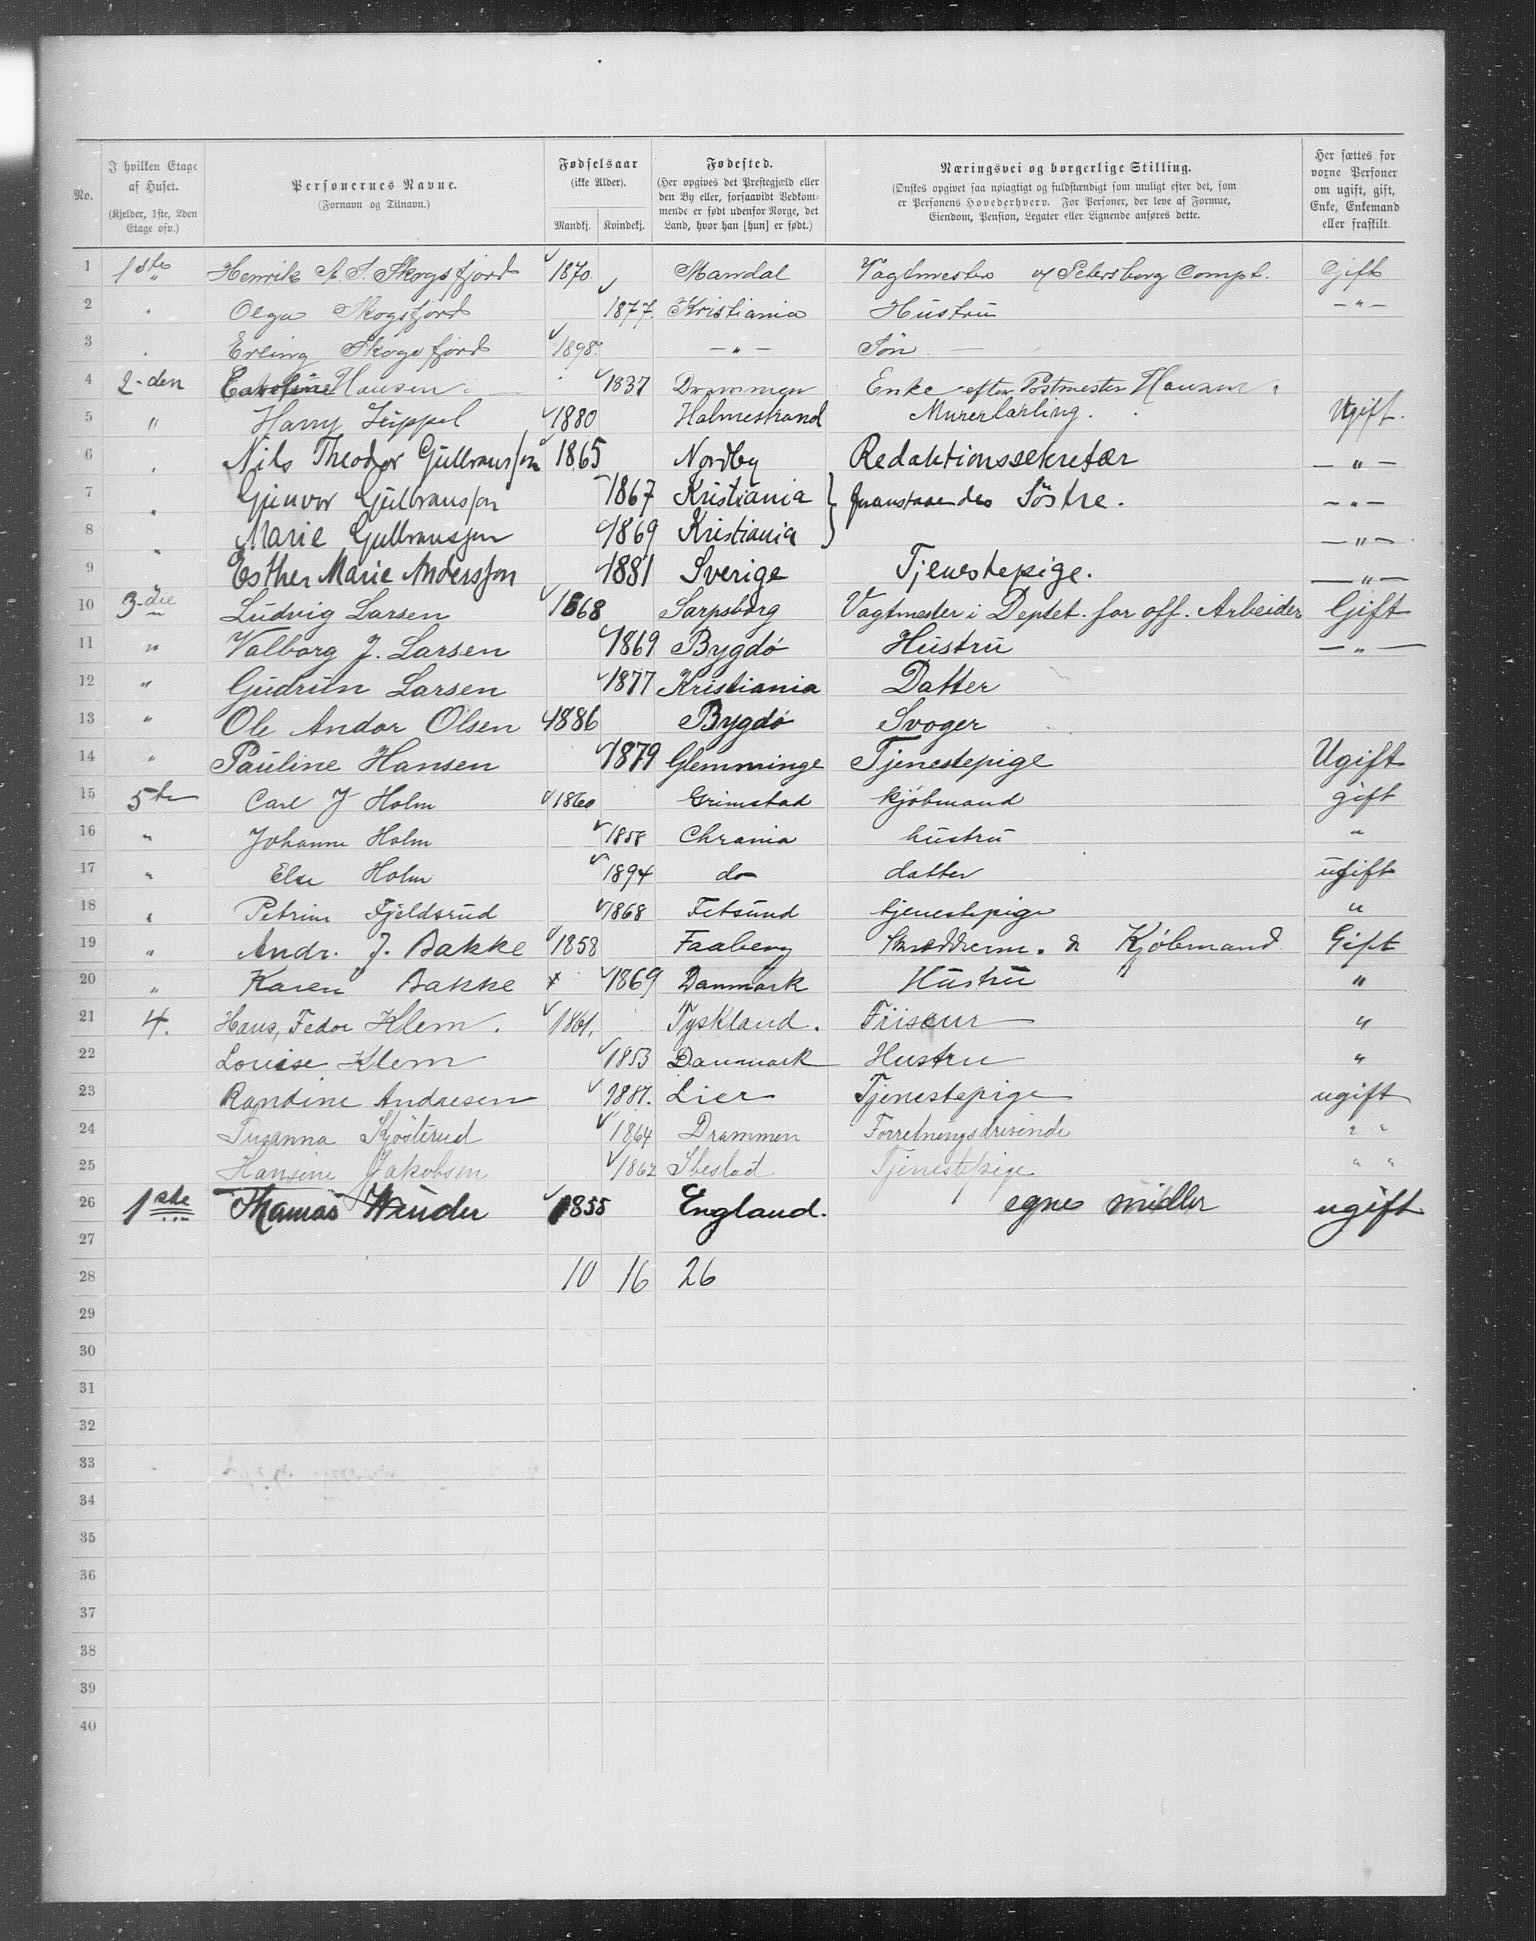 No. | I hvilken Etage af Huset. (Kjelder, 1ste, 2den Etage osv.) | Personernes Navne. (Fornavn og Tilnavn.) | Fødselsaar (ikke Alder). Mandkj. Kvindekj. | Fødested. (Her opgives det Prestegjæld eller den By eller, forsaavidt Vedkommende er født udenfor Norge, det Land, hvor han [hun] er født.) | Næringsvei og borgerlige Stilling. (Ønskes opgivet saa nøiagtigt og fuldstændigt som muligt efter det, som er Personens Hovederhverv. For Personer, der leve af Formue, Eiendom, Pension, Legater eller Lignende anføres dette. | Her sættes for voxne Personer om ugift, gift, Enke, Enkemand eller fraskilt.
1 1ste Henrik A. S. Skogsfjord 1870. Mandal Vagtmester v/ Petersborg Compt. Gift
2 Olga Skogsfjord 1877. Kristiania Hustru — " —
3 Erling Skogsfjord 1898. — " — Søn
4 2-den Caroline Hansen 1837 Drammen Enke efter Postmester Hansen
5 " Harry Zeppel 1880 Holmestrand Murerlærling. Ugift.
6 Nils Theodor Gulbransson 1865 Nordby Redaktionssekretær — " —
7 Gunvor Gulbransson 1867 Kristiania } foranstaaendes Søstre. — " —
8 Marie Gulbransson 1869 Kristiania } — " —
9 " Esther Marie Andersson 1881 Sverige Tjenestepige. — " —
10 3-die Ludvig Larsen 1868 Sarpsborg Vagtmester i Deptet. for off. Arbeider Gift
11 " Valborg J. Larsen 1869 Bygdø Hustru — " —
12 " Gudrun Larsen 1877 Kristiania Datter
13 " Ole Andor Olsen 1886 Bygdø Svoger
14 " Pauline Hansen 1879 Glemminge Tjenestepige Ugift
15 5te Carl J Holm 1860 Grimstad kjøbmand gift
16 " Johanne Holm 1858 Chrania hustru "
17 " Else Holm 1894 do datter ugift
18 " Petrine Fjeldsrud 1868 Fetsund tjenestepige "
19 " Andr. J. Bakke 1858 Faaberg Skræddem. & Kjøbmand Gift
20 " Karen Bakke x 1869 Danmark Hustru "
21 4. Hans, Fedor Klem. 1861. Tyskland. Friseur "
22 Louise Klem 1853 Danmark Hustru "
23 Randine Andresen 1881. Lier Tjenestepige ugift
24 Susanna Kjøsterud 1864 Drammen Forretningsdrivende " "
25 Hansine Jakobsen 1862 Ibestad Tjenestepige " "
26 1ste Thomas Winder 1855 England. egne midler ugift
27
28 10 16 26
29
30
31
32
33
34
35
36
37
38
39
40